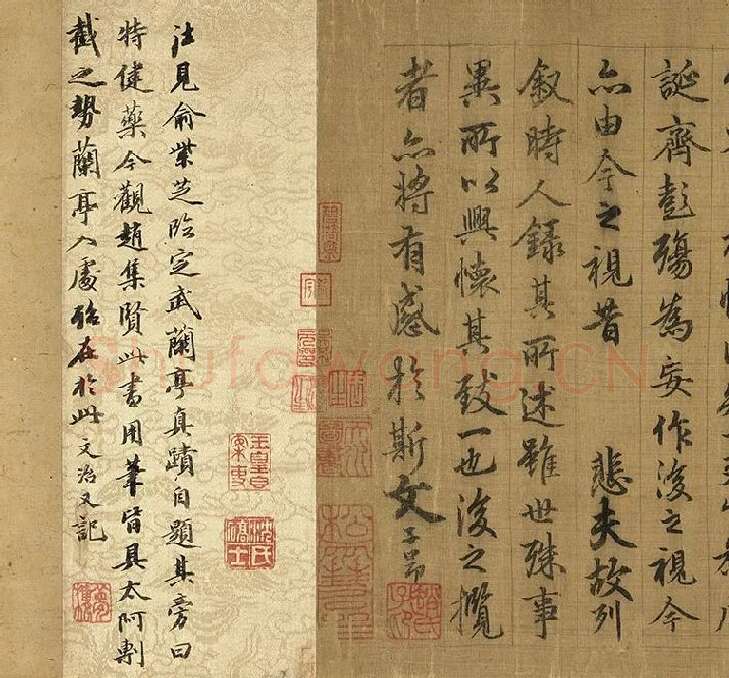 誕齊彭殤為妄作後之視今
亦由今之視昔 悲夫故列
叙時人錄其所述雖世殊事
異所以興懷其致一也後之攬
者亦將有感於斯文 子昂
趙氏子昂
往見俞紫芝臨定武蘭亭真蹟自題其旁曰
特健藥今觀趙集賢此書用筆皆具太阿剸
截之勢蘭亭入處殆在於此文治又記
夢樓
Shufawang.CN